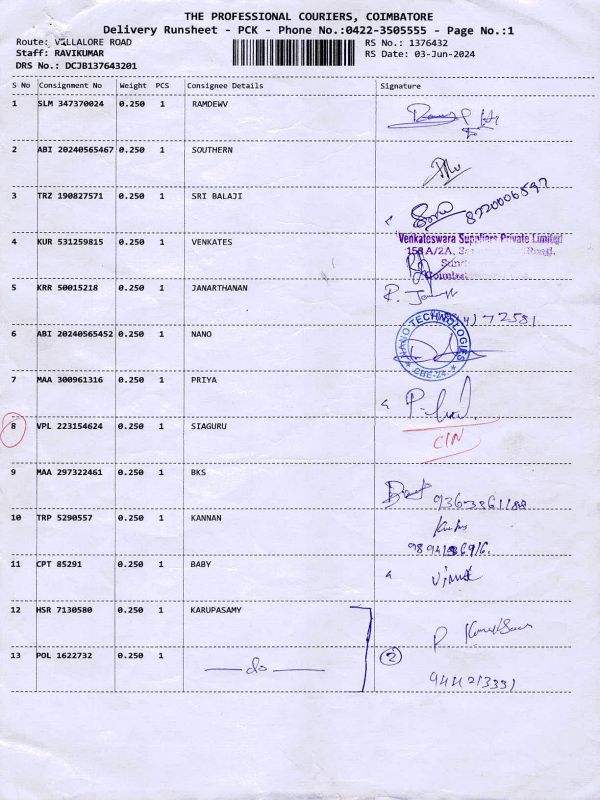 THE PROFESSIONAL COURIERS, COIMBATORE
Delivery Runsheet - PCK - Phone No.:0422-3505555 - Page No.:1
Route: VELLALORE ROAD
RS No.: 1376432
Staff: RAVIKUMAR
RS Date: 03-Jun-2024
DRS No.: DCJB137643201
S No Consignment No Weight PCS Consignee Details Signature
1 SLM 347370024 0.250 1 RAMDEWV
2 ABI 20240565467 0.250 1 SOUTHERN
3 TRZ 190827571 0.250 1 SRI BALAJI
8220006597
4 KUR 531259815 0.250 1 VENKATES
Venkateswara Suppliers Private Limited
158 A/2A, Road,
5 KRR 50015218 0.250 1 JANARTHANAN
R.
72581
6 ABI 20240565452 0.250 1 NANO
NANO TECHNOLOGIES
CBE-24
7 MAA 300961316 0.250 1 PRIYA
8 VPL 223154624 0.250 1 SIAGURU
CIN
9 MAA 297322461 0.250 1 BKS
10 TRP 5290557 0.250 1 KANNAN
11 CPT 85291 0.250 1 BABY
12 HSR 7130580 0.250 1 KARUPASAMY
P
13 POL 1622732 0.250 1 —do—
2